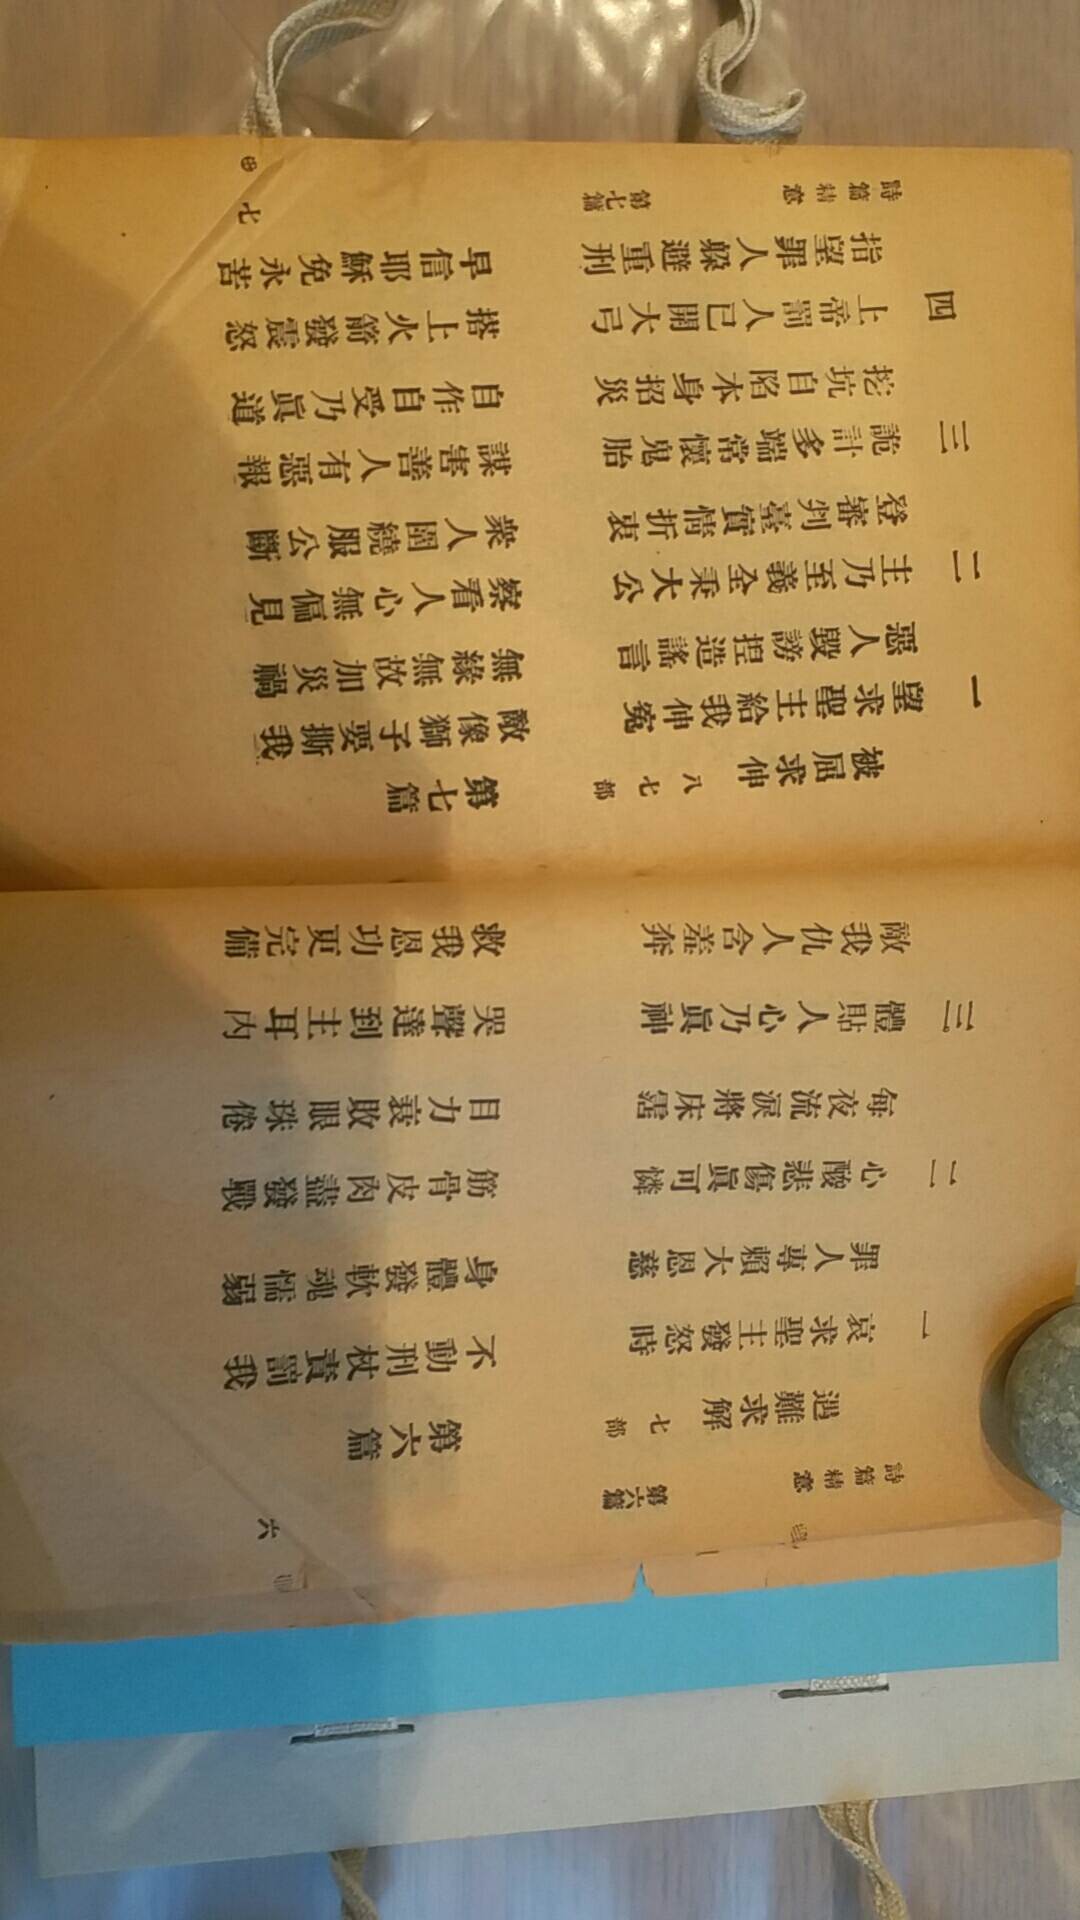 詩篇精意 第六篇 六
遇難求解 七部 第六篇
一 哀求聖主發怒時 不動刑杖責罰我
罪人專賴大恩慈 身體發軟魂懦弱
二 心酸悲傷眞可憐 筋骨皮肉盡發戰
每夜流淚將床霑 目力衰敗眼珠倦
三 體貼人心乃眞神 哭聲達到主耳內
敵我仇人含羞奔 救我恩功更完備
被屈求伸 八七部 第七篇
一 望求聖主給我伸寃 敵像獅子要撕我
惡人毀謗捏造謠言 無緣無故加災禍
二 主乃至義全秉大公 察看人心無偏見
登審判臺實情折衷 衆人圍繞服公斷
三 詭計多端常懷鬼胎 謀害善人有惡報
挖坑自陷本身招災 自作自受乃眞道
四 上帝罰人已開大弓 搭上火箭發震怒
指望罪人躲避重刑 早信耶穌免永苦
詩篇精意 第七篇 七